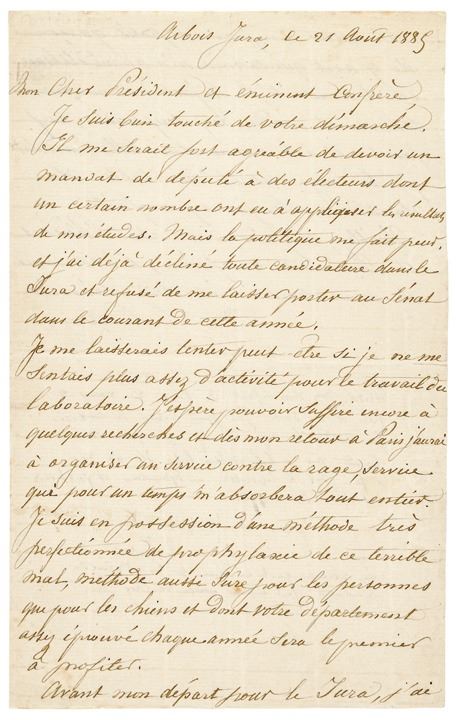 Arbois Jura, Ce 21 Août 1885
Mon Cher Président et éminent Confrère
Je suis bien touché de votre démarche.
Il me serait fort agréable de devoir un
mandat de député à des électeurs dont
un certain nombre ont eu à appliquer les résultats
de mes études. Mais la politique me fait peur,
et j'ai déjà décliné toute candidature dans le
Jura et refusé de me laisser porter au Sénat
dans le courant de cette année.
Je me laisserais tenter peut être si je ne me
sentais plus assez d'activité pour le travail du
laboratoire. J'espère pouvoir suffire encore à
quelques recherches et dès mon retour à Paris j'aurai
à organiser un service contre la rage, service
qui pour un temps m'absorbera tout entier.
Je suis en possession d'une méthode très
perfectionnée de prophylaxie de ce terrible
mal, méthode aussi sûre pour les personnes
que pour les chiens et dont votre département
assez éprouvé chaque année sera le premier
à profiter.
Avant mon départ pour le Jura, j'ai